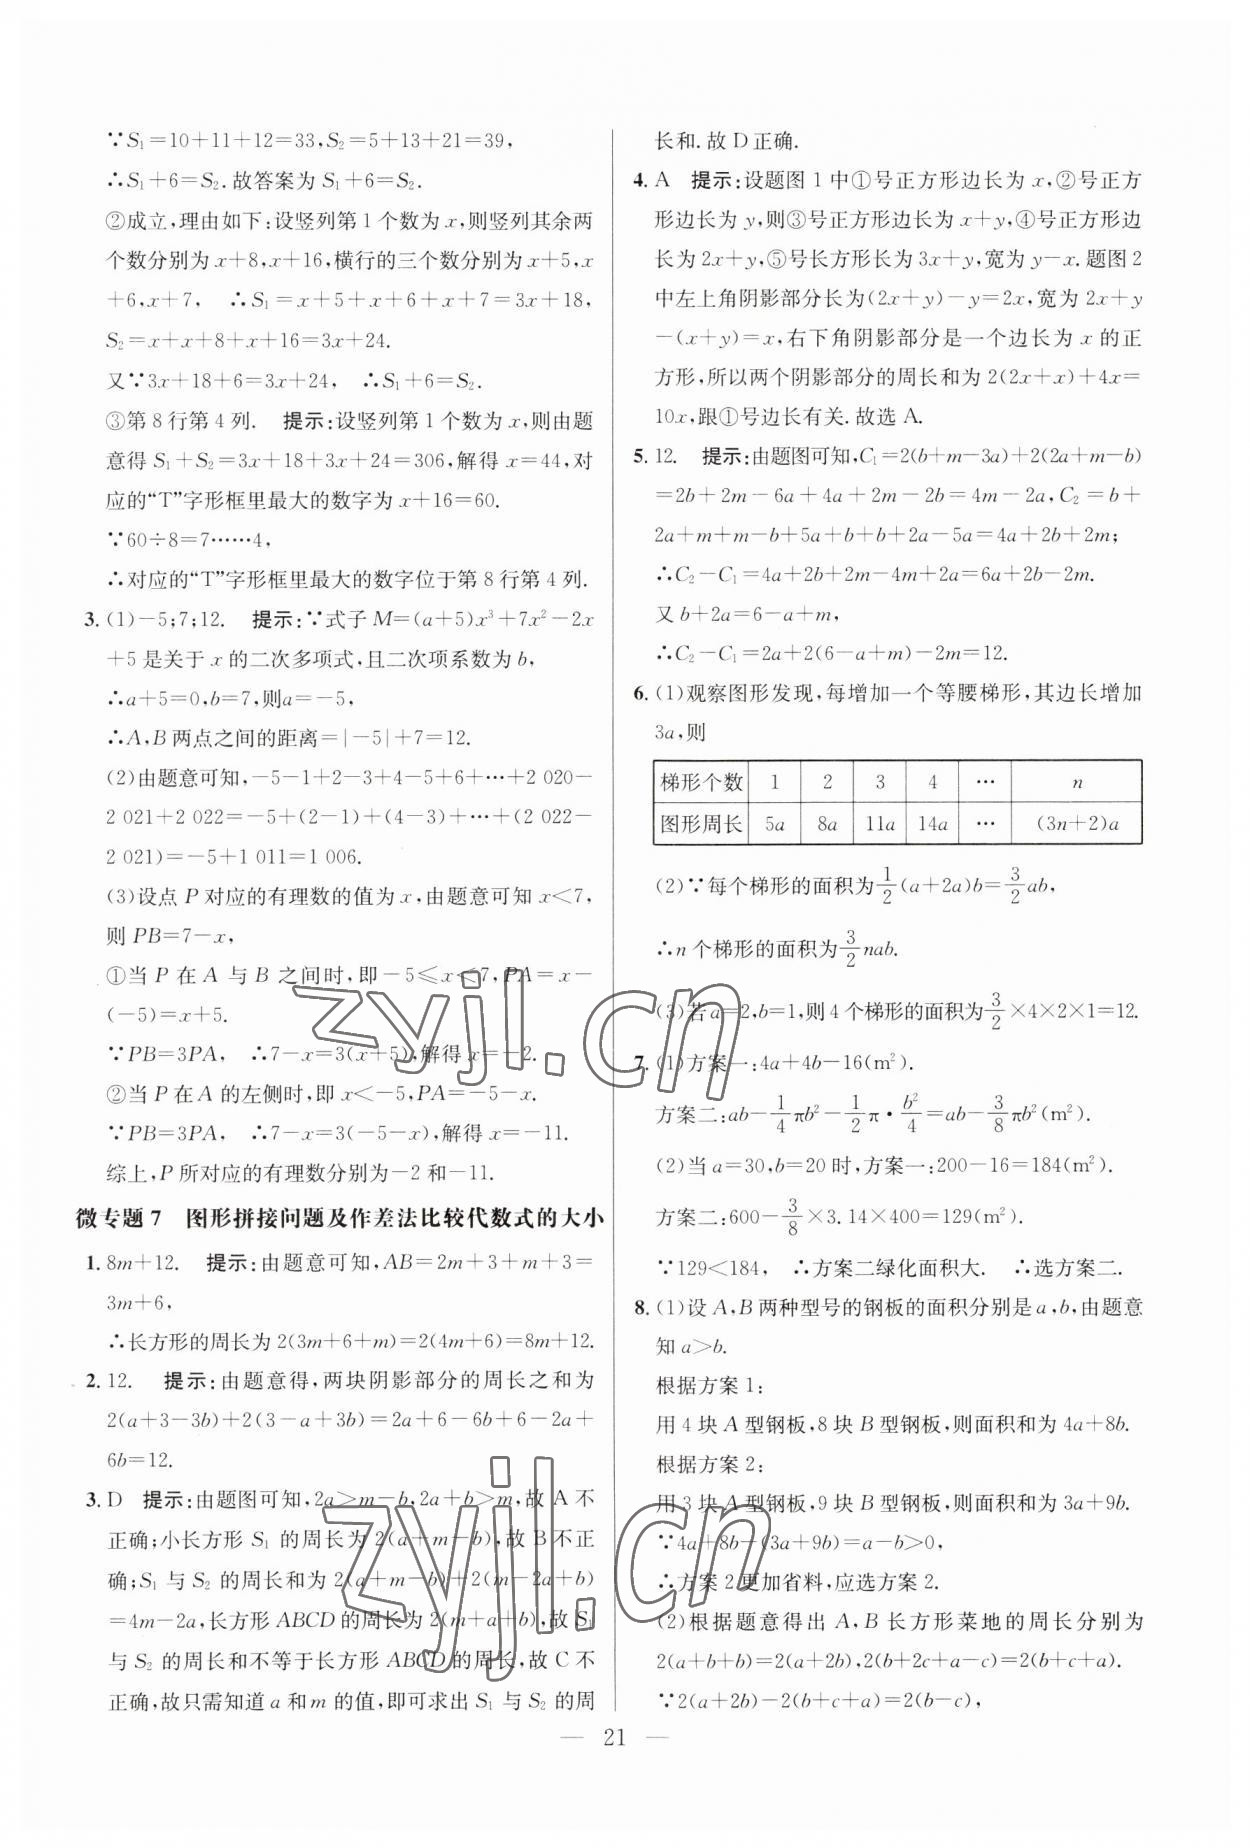 ∵S₁=10+11+12=33,S₂=5+13+21=39,
∴S₁+6=S₂.故答案为S₁+6=S₂.
②成立,理由如下:设竖列第1个数为x,则竖列其余两
个数分别为x+8,x+16,横行的三个数分别为x+5,x
+6,x+7, ∴S₁=x+5+x+6+x+7=3x+18,
S₂=x+x+8+x+16=3x+24.
又∵3x+18+6=3x+24, ∴S₁+6=S₂.
③第8行第4列. 提示:设竖列第1个数为x,则由题
意得S₁+S₂=3x+18+3x+24=306,解得x=44,对
应的“T”字形框里最大的数字为x+16=60.
∵60÷8=7……4,
∴对应的“T”字形框里最大的数字位于第8行第4列.
3.(1)-5;7;12. 提示:∵式子M=(a+5)x³+7x²-2x
+5是关于x的二次多项式,且二次项系数为b,
∴a+5=0,b=7,则a=-5,
∴A,B两点之间的距离=|-5|+7=12.
(2)由题意可知,-5-1+2-3+4-5+6+…+2 020-
2 021+2 022=-5+(2-1)+(4-3)+…+(2 022-
2 021)=-5+1 011=1 006.
(3)设点P对应的有理数的值为x,由题意可知x<7,
则PB=7-x,
①当P在A与B之间时,即-5≤x<7,PA=x-
(-5)=x+5.
∵PB=3PA, ∴7-x=3(x+5),解得x=-2.
②当P在A的左侧时,即x<-5,PA=-5-x.
∵PB=3PA, ∴7-x=3(-5-x),解得x=-11.
综上,P所对应的有理数分别为-2和-11.
微专题7 图形拼接问题及作差法比较代数式的大小
1. 8m+12. 提示:由题意可知,AB=2m+3+m+3=
3m+6,
∴长方形的周长为2(3m+6+m)=2(4m+6)=8m+12.
2. 12. 提示:由题意得,两块阴影部分的周长之和为
2(a+3-3b)+2(3-a+3b)=2a+6-6b+6-2a+
6b=12.
3. D 提示:由题图可知,2a>m-b,2a+b>m,故A不
正确;小长方形S₁的周长为2(a+m-b),故B不正
确;S₁与S₂的周长和为2(a+m-b)+2(m-2a+b)
=4m-2a,长方形ABCD的周长为2(m+a+b),故S₁
与S₂的周长和不等于长方形ABCD的周长,故C不
正确,故只需知道a和m的值,即可求出S₁与S₂的周
长和.故D正确.
4. A 提示:设题图1中①号正方形边长为x,②号正方
形边长为y,则③号正方形边长为x+y,④号正方形边
长为2x+y,⑤号长方形长为3x+y,宽为y-x.题图2
中左上角阴影部分长为(2x+y)-y=2x,宽为2x+y
-(x+y)=x,右下角阴影部分是一个边长为x的正
方形,所以两个阴影部分的周长和为2(2x+x)+4x=
10x,跟①号边长有关.故选A.
5. 12. 提示:由题图可知,C₁=2(b+m-3a)+2(2a+m-b)
=2b+2m-6a+4a+2m-2b=4m-2a,C₂=b+
2a+m+m-b+5a+b+b+2a-5a=4a+2b+2m;
∴C₂-C₁=4a+2b+2m-4m+2a=6a+2b-2m.
又b+2a=6-a+m,
∴C₂-C₁=2a+2(6-a+m)-2m=12.
6.(1)观察图形发现,每增加一个等腰梯形,其边长增加
3a,则
梯形个数 1 2 3 4 … n
图形周长 5a 8a 11a 14a … (3n+2)a
(2)∵每个梯形的面积为1/2(a+2a)b=3/2ab,
∴n个梯形的面积为3/2nab.
(3)若a=2,b=1,则4个梯形的面积为3/2×4×2×1=12.
7.(1)方案一:4a+4b-16(m²).
方案二:ab-1/4πb²-1/2π·b²/4=ab-3/8πb²(m²).
(2)当a=30,b=20时,方案一:200-16=184(m²).
方案二:600-3/8×3.14×400=129(m²).
∵129<184, ∴方案二绿化面积大. ∴选方案二.
8.(1)设A,B两种型号的钢板的面积分别是a,b,由题意
知a>b.
根据方案1:
用4块A型钢板,8块B型钢板,则面积和为4a+8b.
根据方案2:
用3块A型钢板,9块B型钢板,则面积和为3a+9b.
∵4a+8b-(3a+9b)=a-b>0,
∴方案2更加省料,应选方案2.
(2)根据题意得出A,B长方形菜地的周长分别为
2(a+b+b)=2(a+2b),2(b+2c+a-c)=2(b+c+a).
∵2(a+2b)-2(b+c+a)=2(b-c),
— 21 —
zyjl.cn
zyjl.cn